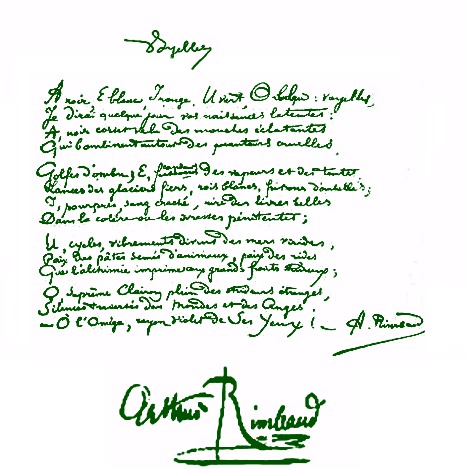 Voyelles
A noir, E blanc, I rouge, U vert, O bleu : voyelles,
Je dirai quelque jour vos naissances latentes :
A, noir corset velu des mouches éclatantes
Qui bombinent autour des puanteurs cruelles,
Golfes d'ombre; E, des vapeurs et des tentes,
Lances des glaciers fiers, rois blancs, frissons d'ombelles;
I, pourpres, sang craché, rire des lèvres belles
Dans la colère ou les ivresses pénitentes;
U, cycles, vibrements divins des mers virides,
Paix des pâtis semés d'animaux, paix des rides
Que l'alchimie imprime aux grands fronts studieux;
O, Suprême Clairon plein des strideurs étranges,
Silences traversés des Mondes et des Anges :
— O l'Oméga, rayon violet de Ses Yeux ! — A. Rimbaud
Arthur Rimbaud